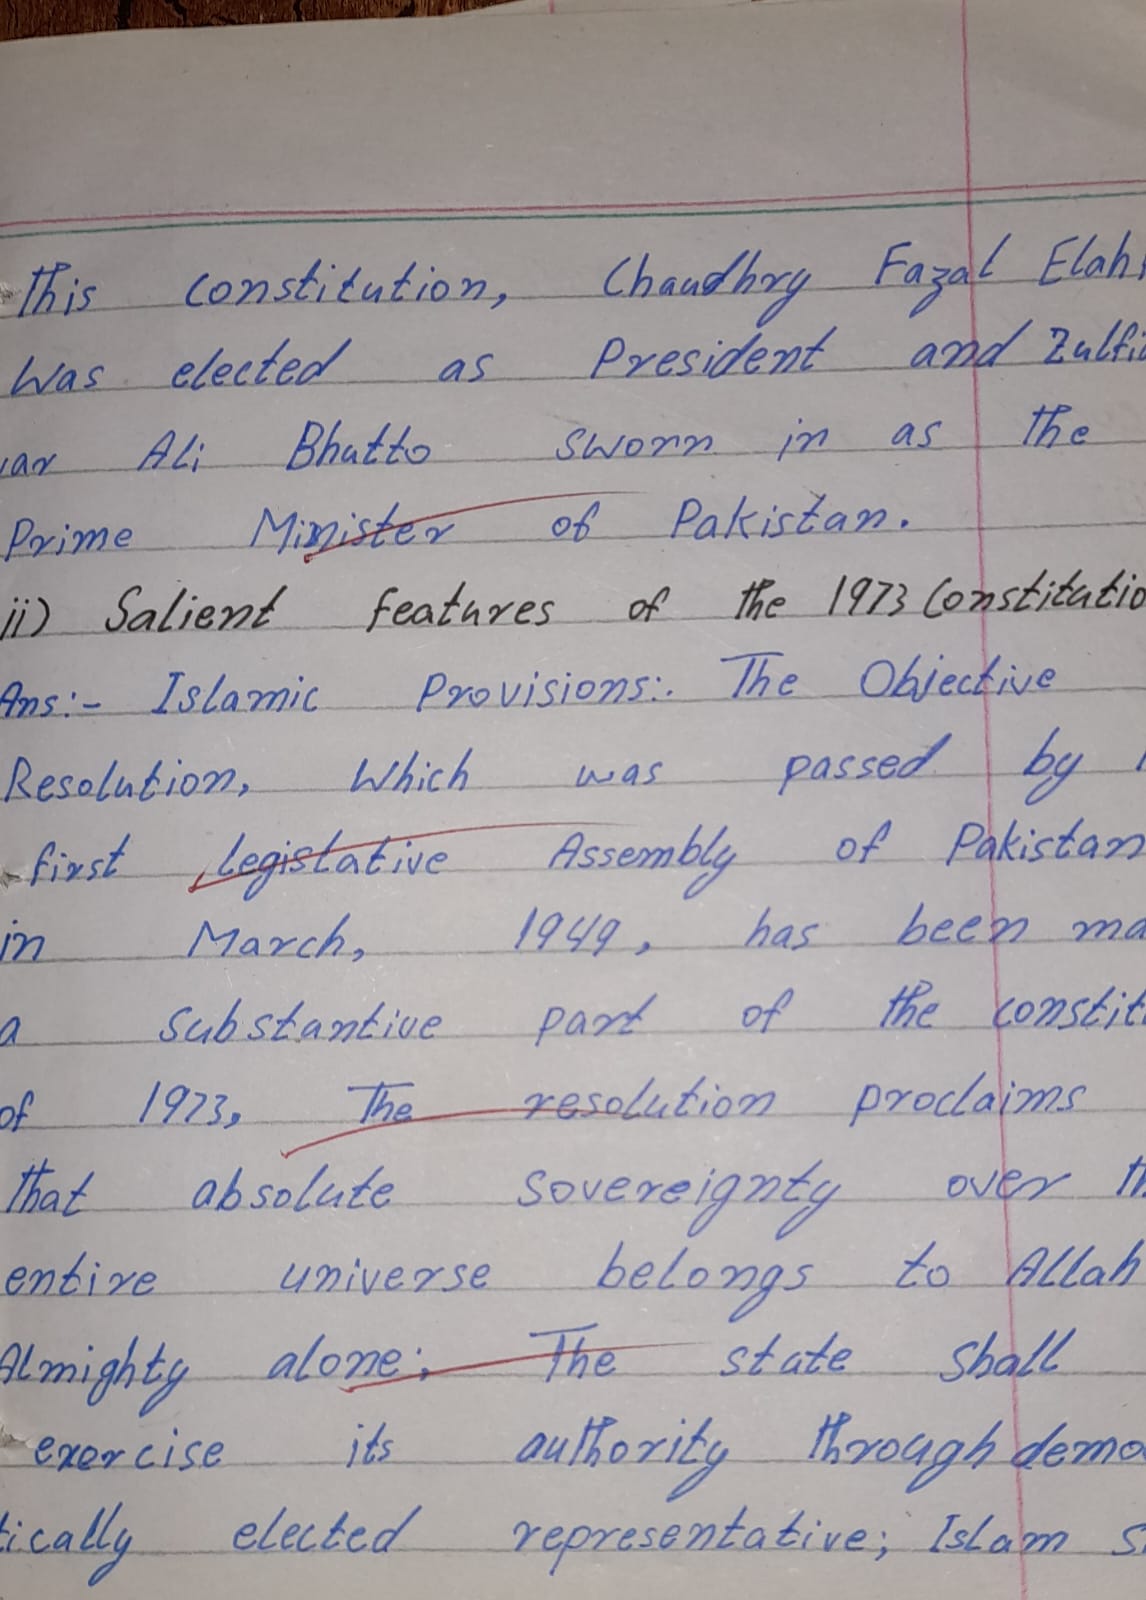 This constitution, Chaudhry Fazal Elahi
Was elected as President and Zulfiq
ar Ali Bhutto sworn in as the
Prime Minister of Pakistan.
ii) Salient features of the 1973 Constitutio
Ans:- Islamic Provisions:. The Objective
Resolution, Which was passed by
first Legislative Assembly of Pakistan
in March, 1949, has been ma
a substantive part of the constit
of 1973, The resolution proclaims
that absolute sovereignty over th
entire universe belongs to Allah
Almighty alone; The state shall
exercise its authority through demo
tically elected representative; Islam s